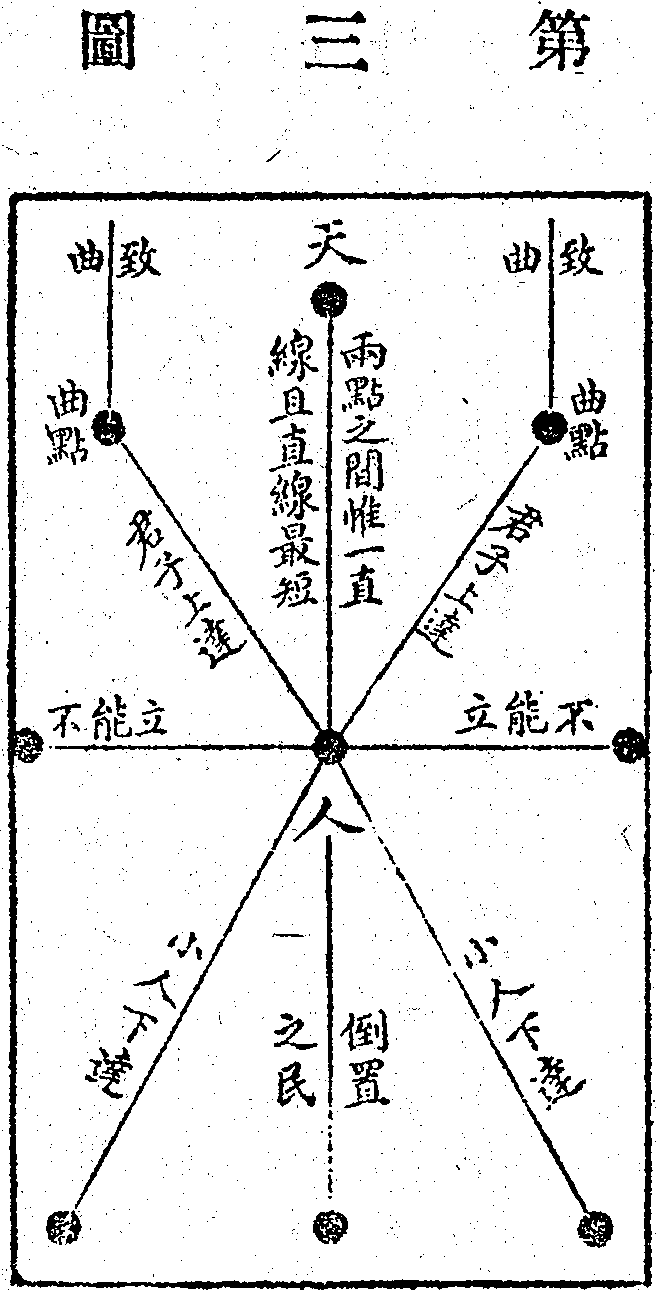 第三圖
致曲
天
致曲
曲點
兩點之間惟一直
線且直線最短
曲點
君子上達
君子上達
不能立
不能立
人
小人下達
倒置
之民
小人下達